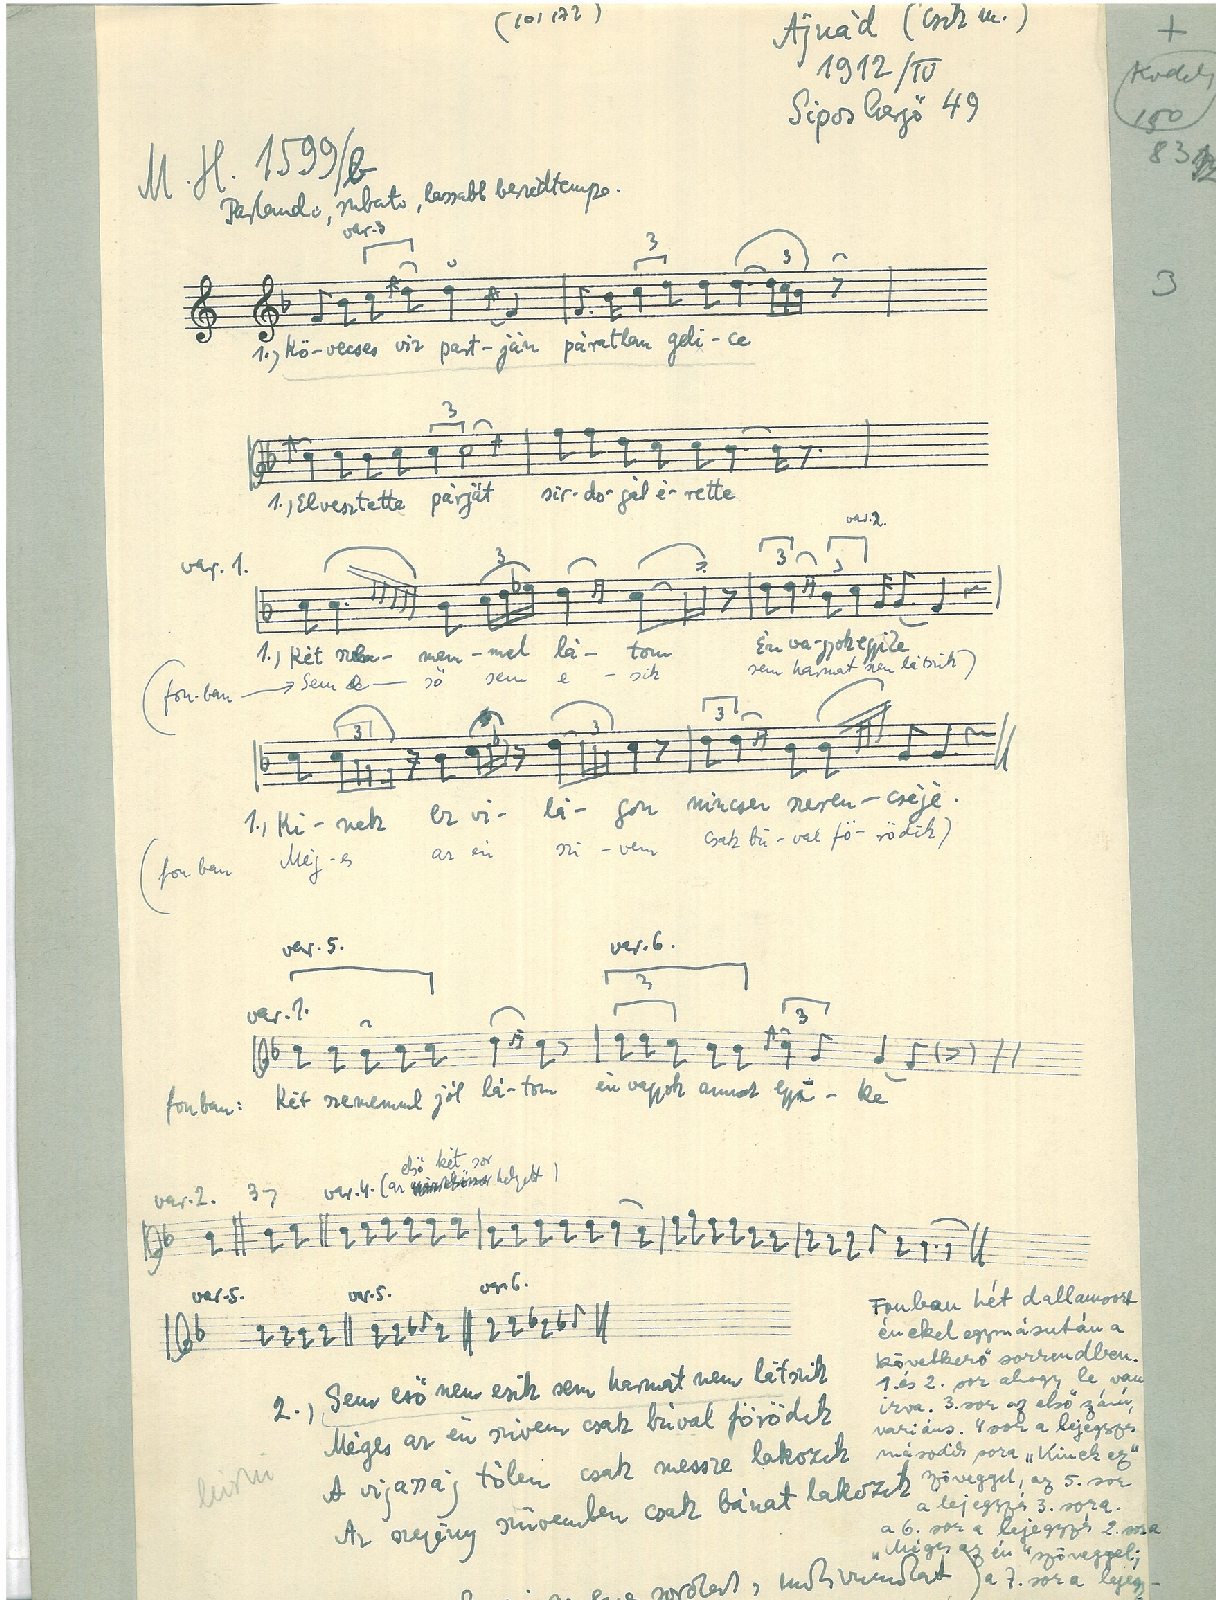 Ajnád (Csík m.)
1912/IV
Sipos Gergő 49
+
150
83
3
M. H. 1599/b
Parlando, rubato, lassabb beszédtempo.
var. 3
3
3
1.) Kö-vecses víz part-ján páratlan geli-ce
3
1.) Elvesztette párját sir-do-gál é-rette
var. 1.
3
3
var. 2.
1.) Két szëm- mem-mel lá- tom Én va-gyok egyike
(fon-ban Sem e- ső sem e - sik sem harmat sem látszik)
3
3
3
1.) Ki - nek ez vi- lá- gon nincsen szeren-cséje.
(fon ban Még-es az én szi - vem csak bú-val fö-rödik)
var. 5.
var. 6.
3
var. 1.
3
fonban: Két szememmel jól lá-tom én vagyok annak egyi - ke
var. 2.
3
var. 4. (az első két sor helyett)
var. 5.
var. 5.
var. 6.
2., Sem eső nem esik sem harmat nem látszik
Méges az én szivem csak búval förödik
A vigasság tőlem csak messze lakozik
Az szegény szivemben csak bánat lakozik
Fonban hét dallamsort
énekel egymásután a
következő sorrendben.
1. és 2. sor ahogy le van
írva. 3. sor az első záró,
variáns. 4 sor a lejegyzés
második sora „Kinek ez"
szöveggel, az 5. sor
a lejegyzés 3. sora.
a 6. sor a lejegyzés 2. sora
„Méges az én" szöveggel;
a 7. sor a lejegy-